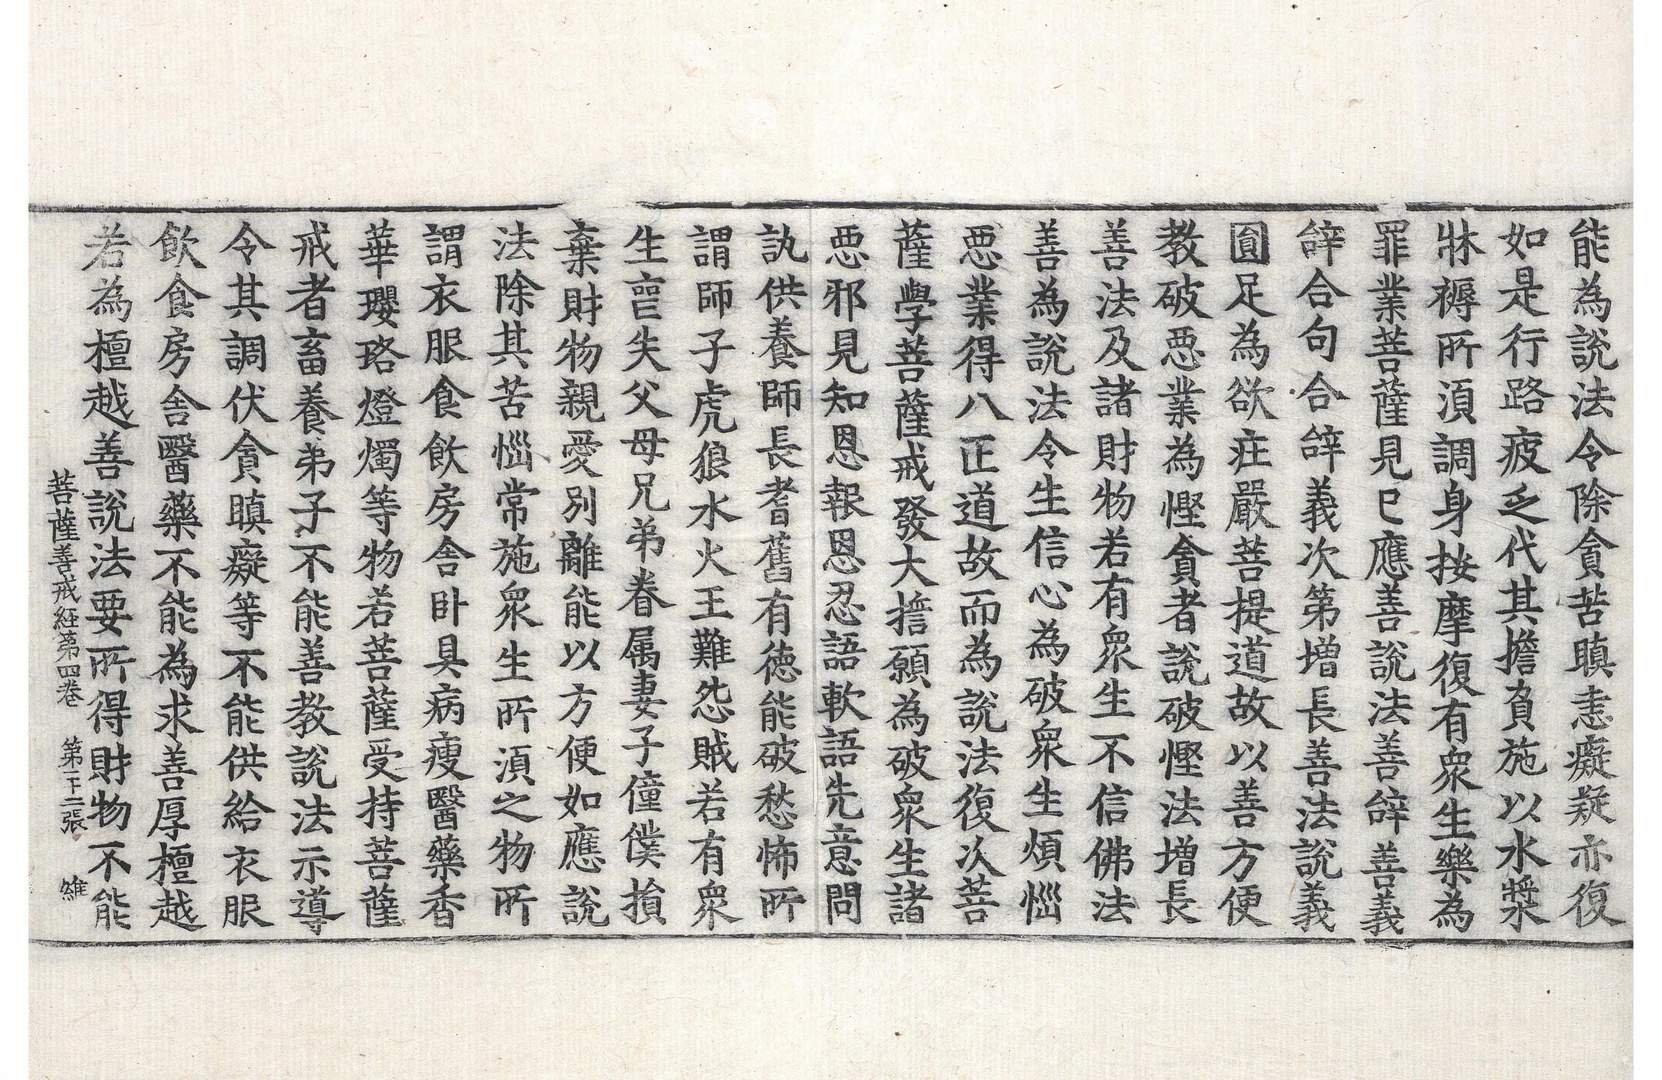 能為說法令除貪苦瞋恚癡疑亦復
如是行路疲乏代其擔負施以水漿
牀褥所須調身按摩復有衆生樂為
罪業菩薩見已應善說法善辝善義
辝合句合辝義次第增長善法說義
圎足為欲莊嚴菩提道故以善方便
教破惡業為慳貪者說破慳法增長
善法及諸財物若有衆生不信佛法
善為說法令生信心為破衆生煩惱
惡業得八正道故而為說法復次菩
薩學菩薩戒發大擔願為破衆生諸
惡邪見知恩報恩忍語軟語先意問
訊供養師長耆舊有德能破愁怖所
謂師子虎狼水火王難怨賊若有衆
生亡失父母兄弟眷属妻子僮僕損
棄財物親愛別離能以方便如應說
法除其苦惱常施衆生所須之物所
謂衣服食飲房舍卧具病瘦醫藥香
華瓔珞燈燭等物若菩薩受持菩薩
戒者畜養弟子不能善教說法示導
令其調伏貪瞋癡等不能供給衣服
飲食房舍醫藥不能為求善厚檀越
若為檀越善說法要所得財物不能
菩薩善戒経第四巻 第二十二張 維